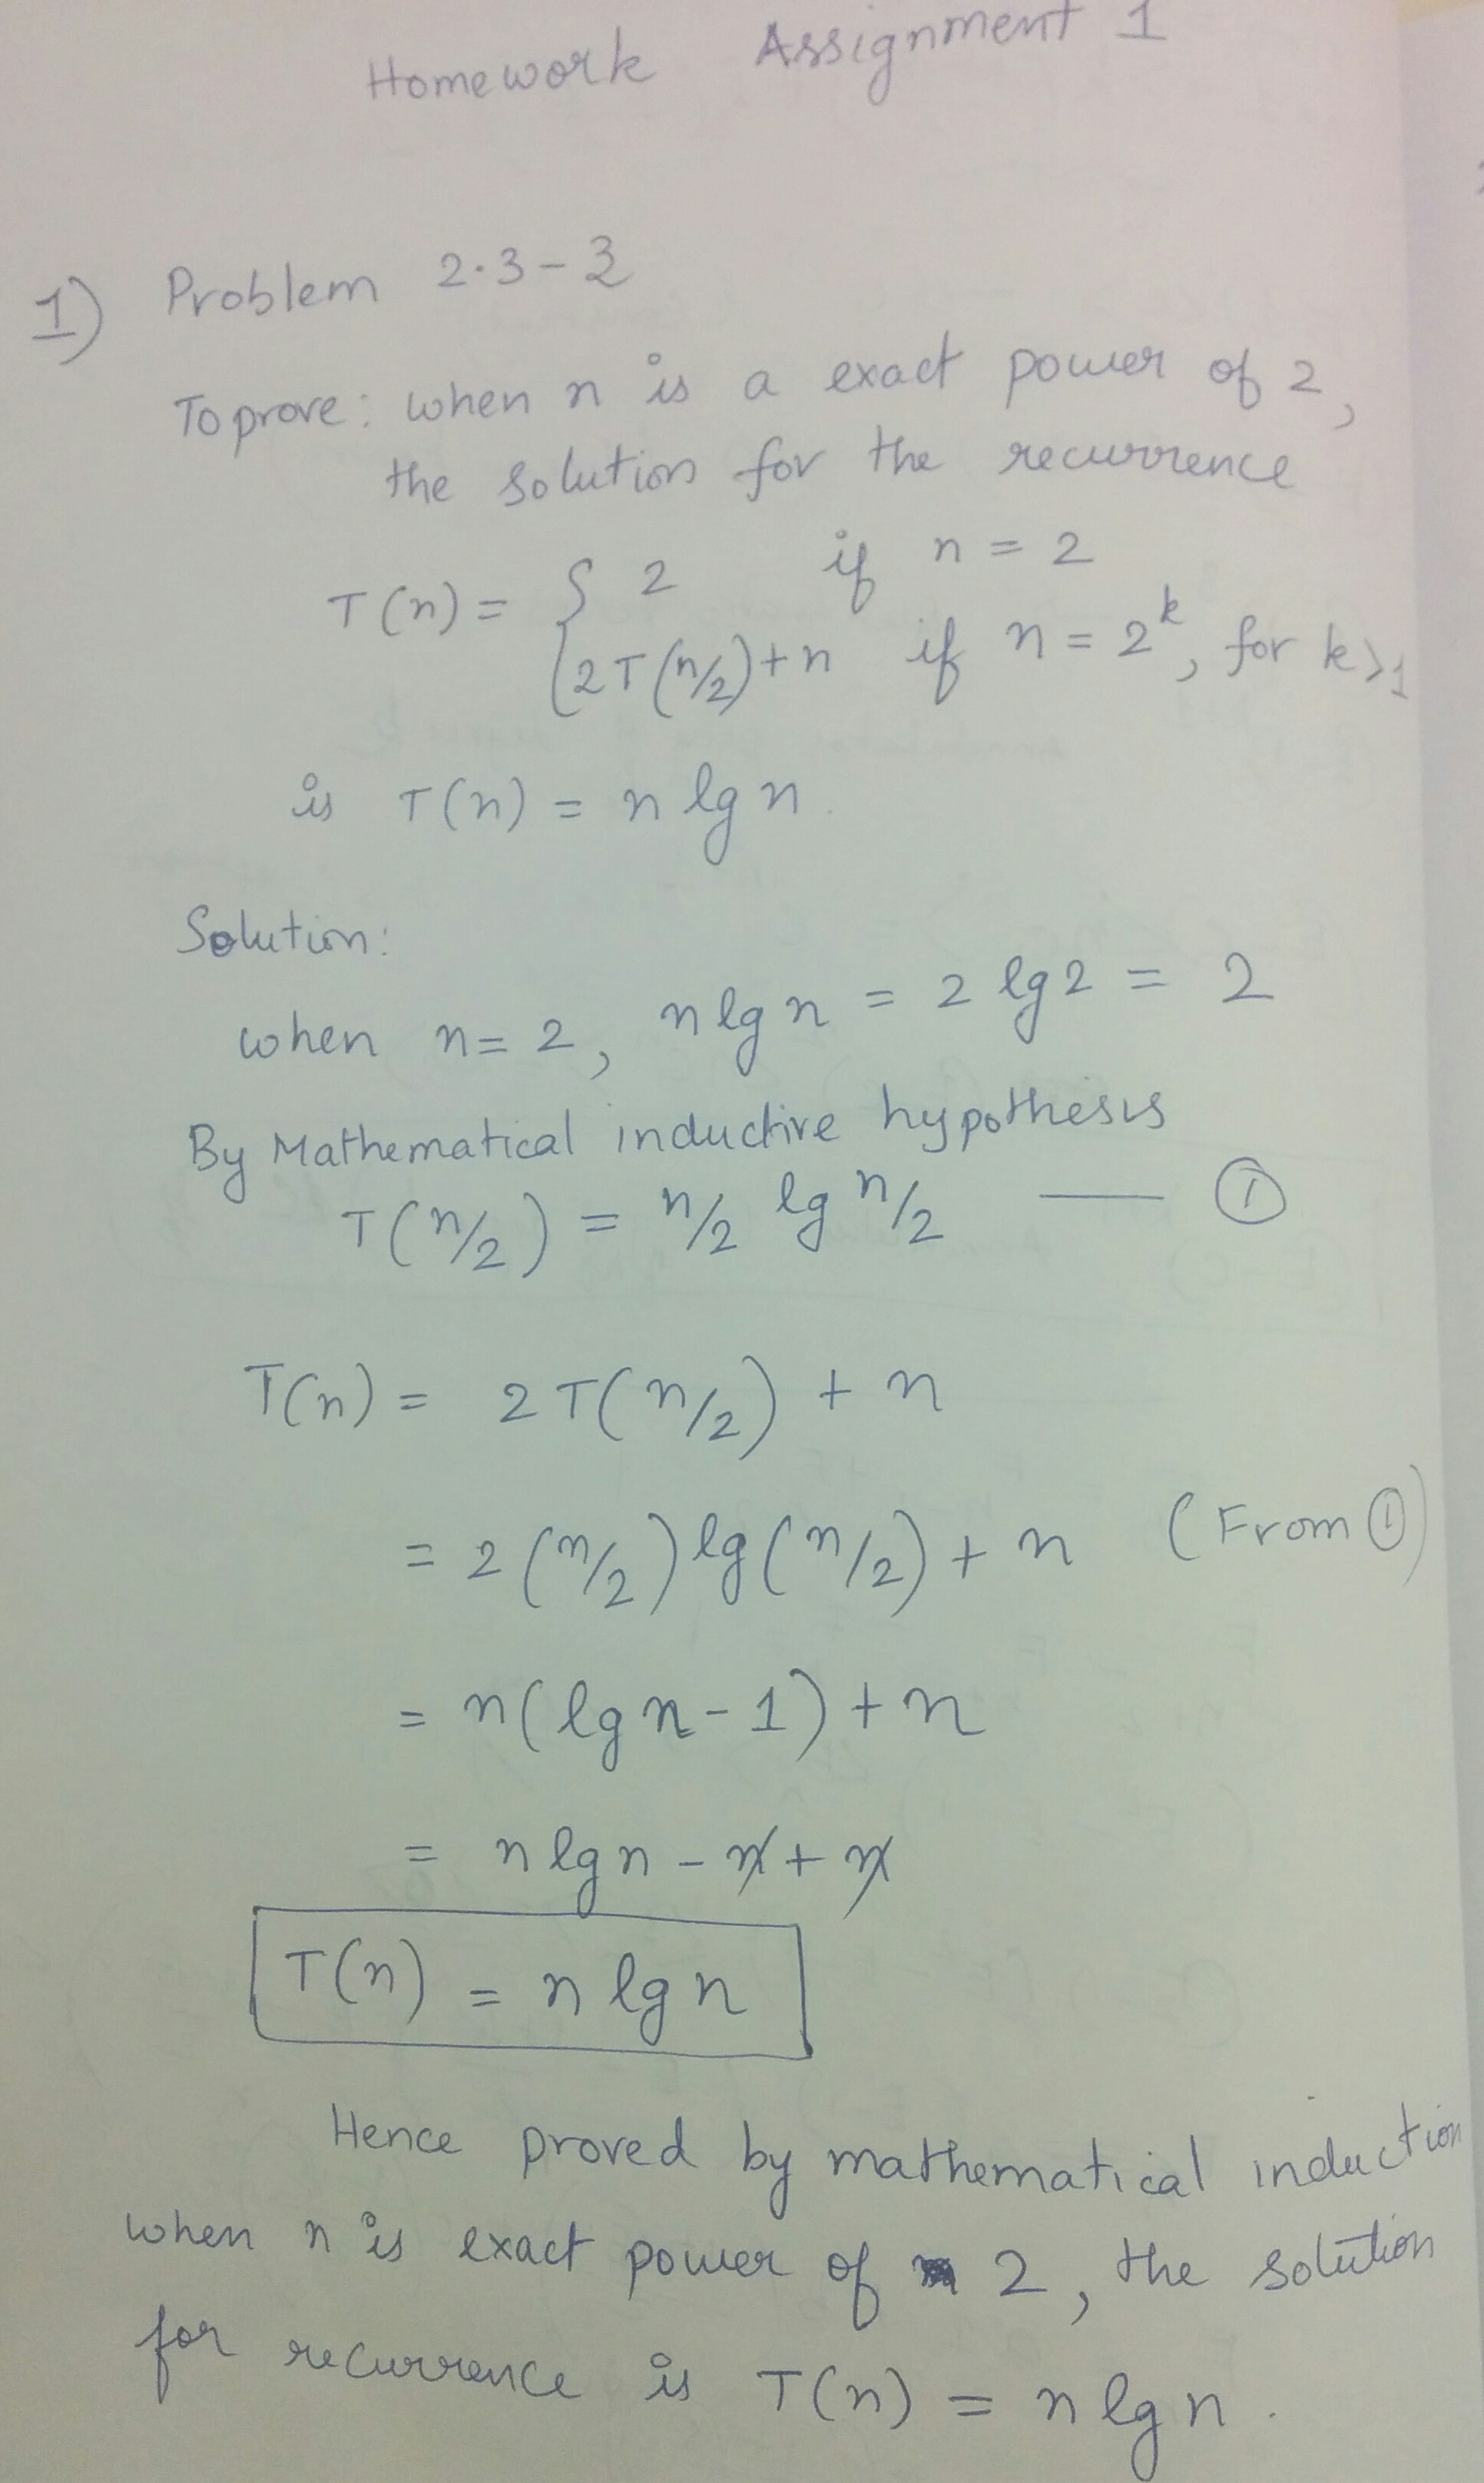 Homework Assignment 1
1) Problem 2.3-3
To prove: when n is a exact power of 2,
the solution for the recurrence
T(n) = { 2 if n = 2
2T(n/2)+n if n = 2^k, for k>1
is T(n) = n lg n.
Solution:
when n=2, n lg n = 2 lg 2 = 2
By Mathematical inductive hypothesis
T(n/2) = n/2 lg n/2 —— ①
T(n) = 2T(n/2) + n
= 2(n/2) lg(n/2) + n (From ①)
= n(lg n - 1) + n
= n lg n - n + n
T(n) = n lg n
Hence proved by mathematical induction
when n is exact power of 2, the solution
for recurrence is T(n) = n lg n.